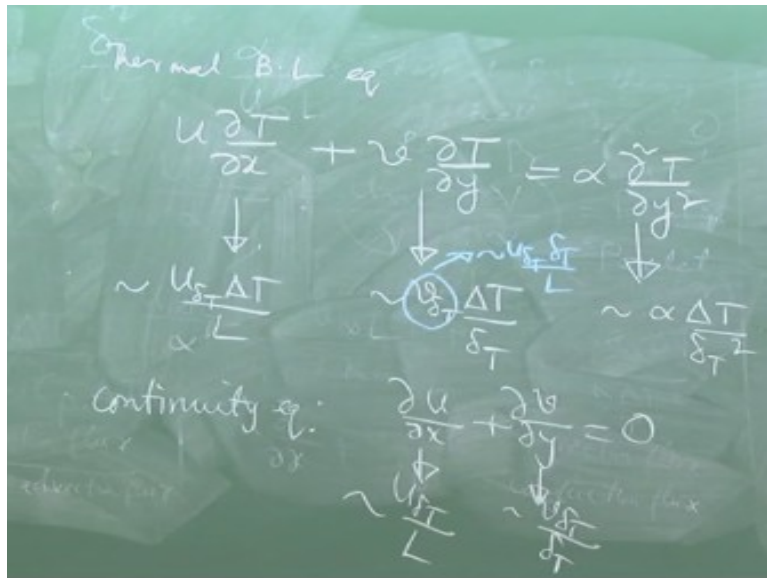 Thermal B.L. eq
u ∂T/∂x + v ∂T/∂y = α ∂²T/∂y²
~ u_δT ΔT/L ~ v_δT ΔT/δ_T ~ α ΔT/δ_T²
~ u_δT δ_T/L
continuity eq: ∂u/∂x + ∂v/∂y = 0
~ u_δT/L ~ v_δT/δ_T